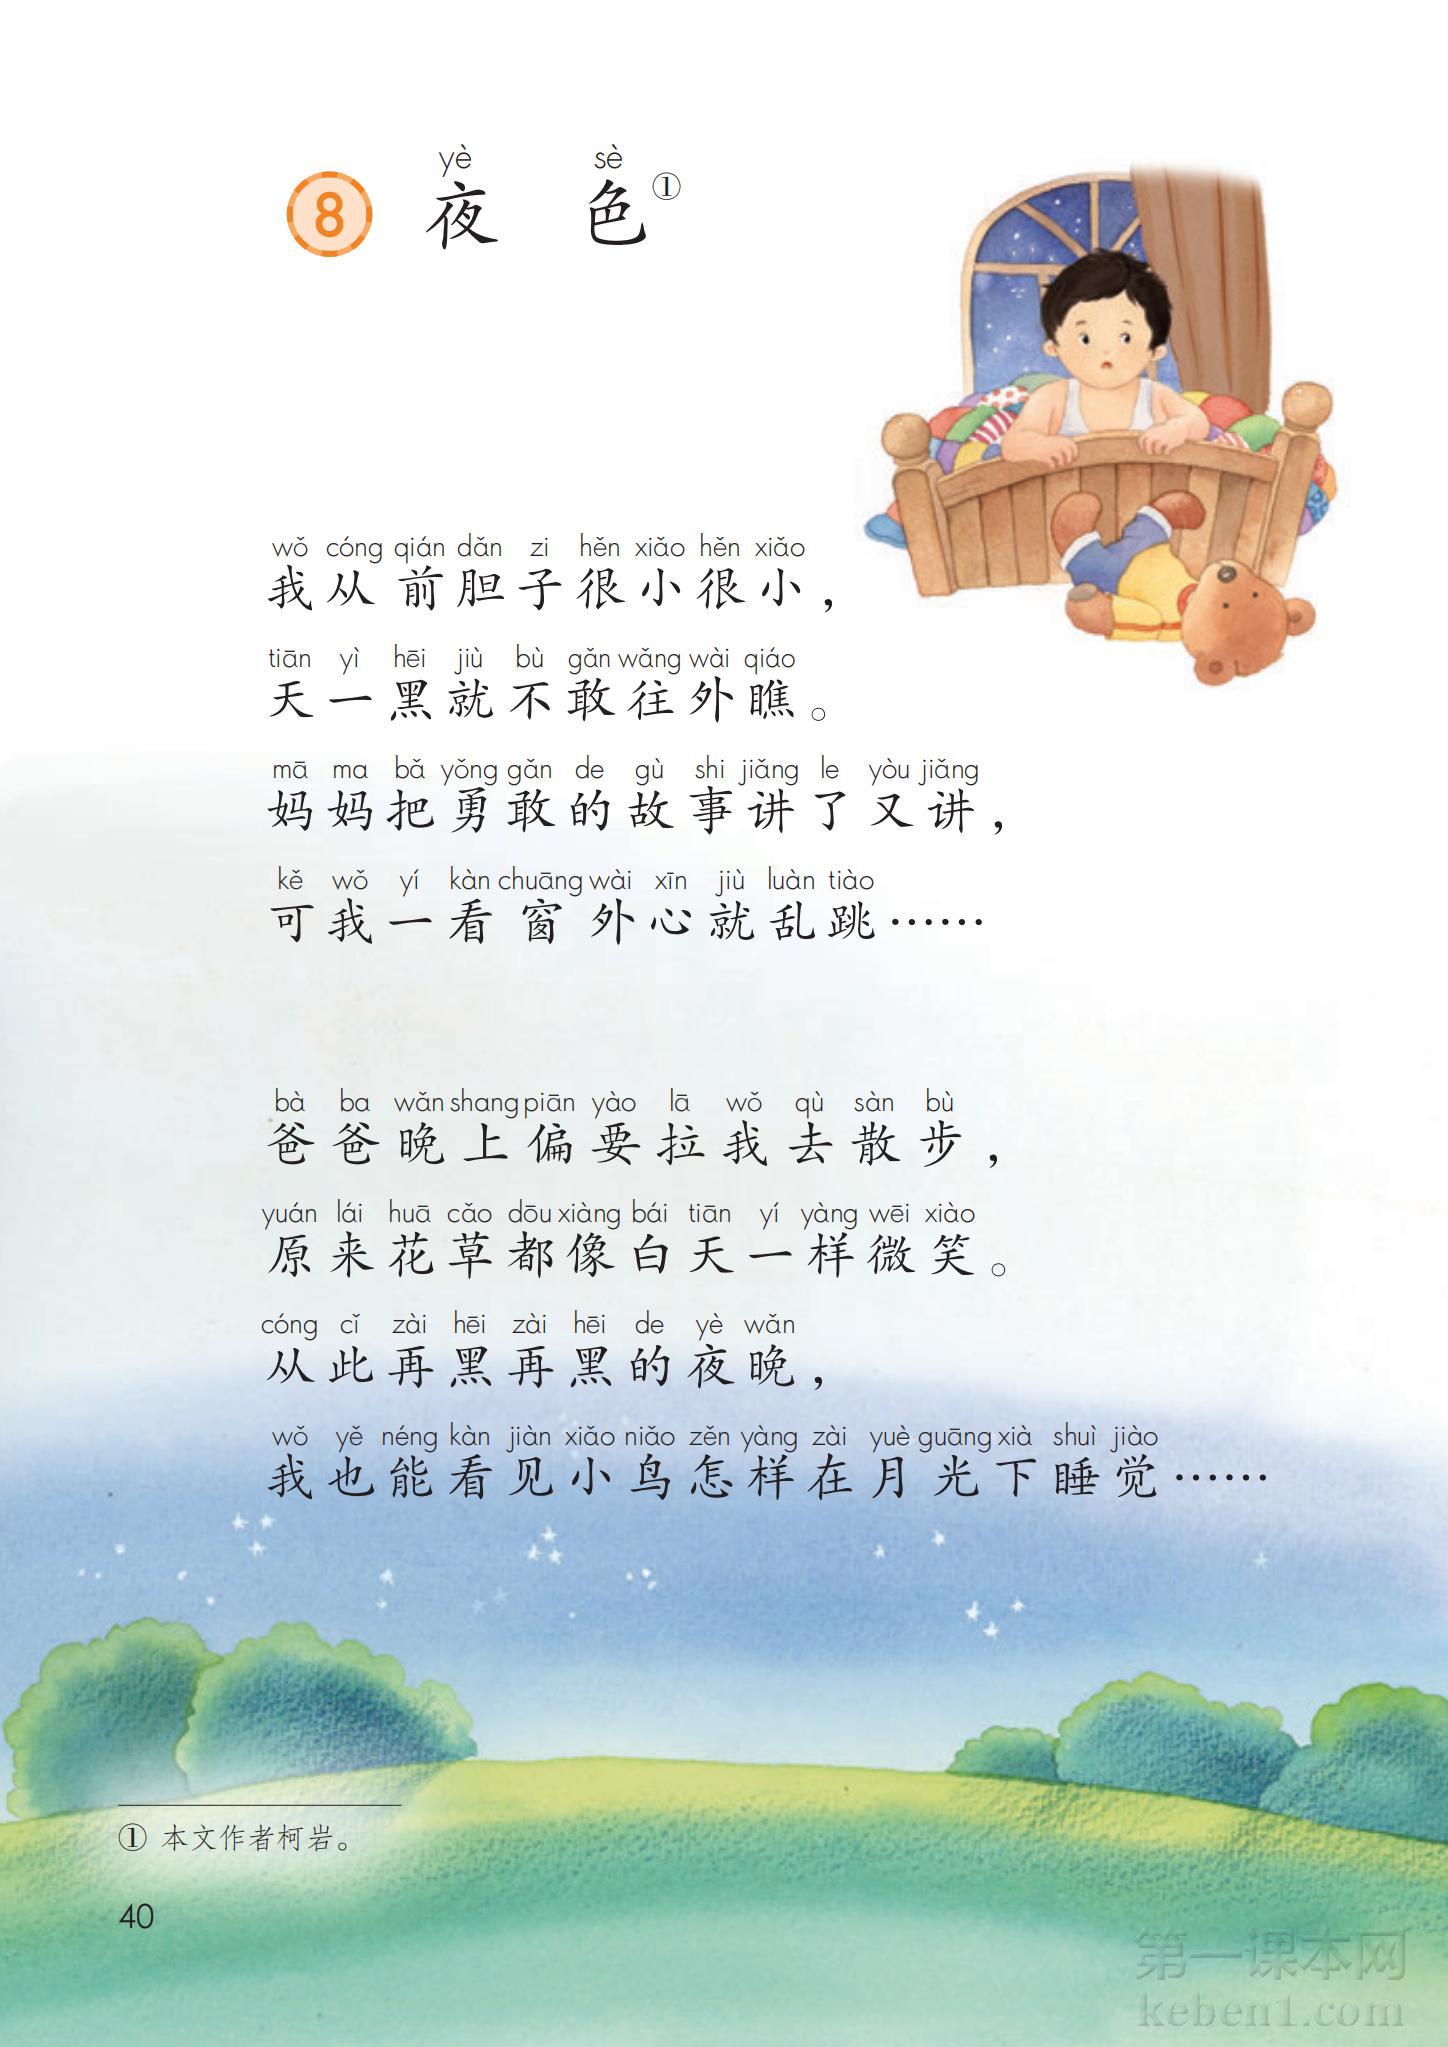 yè sè
8 夜 色①
wǒ cóng qián dǎn zi hěn xiǎo hěn xiǎo
我从前胆子很小很小，
tiān yì hēi jiù bù gǎn wǎng wài qiáo
天一黑就不敢往外瞧。
mā ma bǎ yǒng gǎn de gù shi jiǎng le yòu jiǎng
妈妈把勇敢的故事讲了又讲，
kě wǒ yí kàn chuāng wài xīn jiù luàn tiào
可我一看窗外心就乱跳……
bà ba wǎn shang piān yào lā wǒ qù sàn bù
爸爸晚上偏要拉我去散步，
yuán lái huā cǎo dōu xiàng bái tiān yí yàng wēi xiào
原来花草都像白天一样微笑。
cóng cǐ zài hēi zài hēi de yè wǎn
从此再黑再黑的夜晚，
wǒ yě néng kàn jiàn xiǎo niǎo zěn yàng zài yuè guāng xià shuì jiào
我也能看见小鸟怎样在月光下睡觉……
① 本文作者柯岩。
40
第一课本网
keben1.com